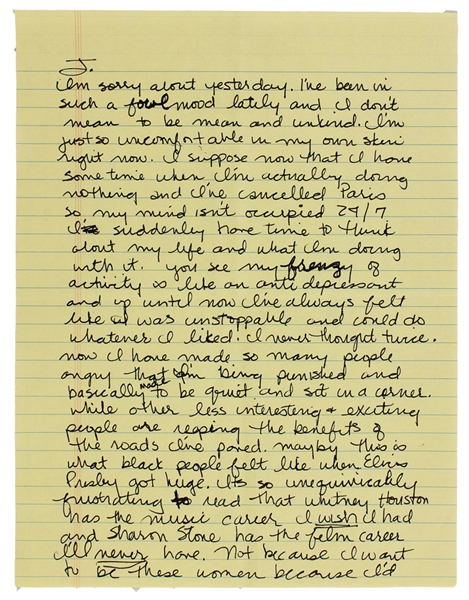 J.
I'm sorry about yesterday. I've been in
such a fowl mood lately and I don't
mean to be mean and unkind. I'm
just so uncomfortable in my own skin
right now. I suppose now that I have
some time when I'm actually doing
nothing and I've cancelled Paris
so, my mind isn't occupied 24/7
I suddenly have time to think
about my life and what I'm doing
with it. you see my frenzy of
activity is like an anti depressant
and up until now I've always felt
like I was unstoppable and could do
whatever I liked. I never thought twice.
now I have made so many people
angry that I'm being punished and
basically made to be quiet and sit in a corner.
while other less interesting & exciting
people are reaping the benefits of
the roads I've paved. mayby this is
what black people felt like when Elvis
Presley got huge. It's so unequivicably
frustrating to read that Whitney Houston
has the music career I wish I had
and Sharon Stone has the film career
I'll never have. Not because I want
to be these women because I'd